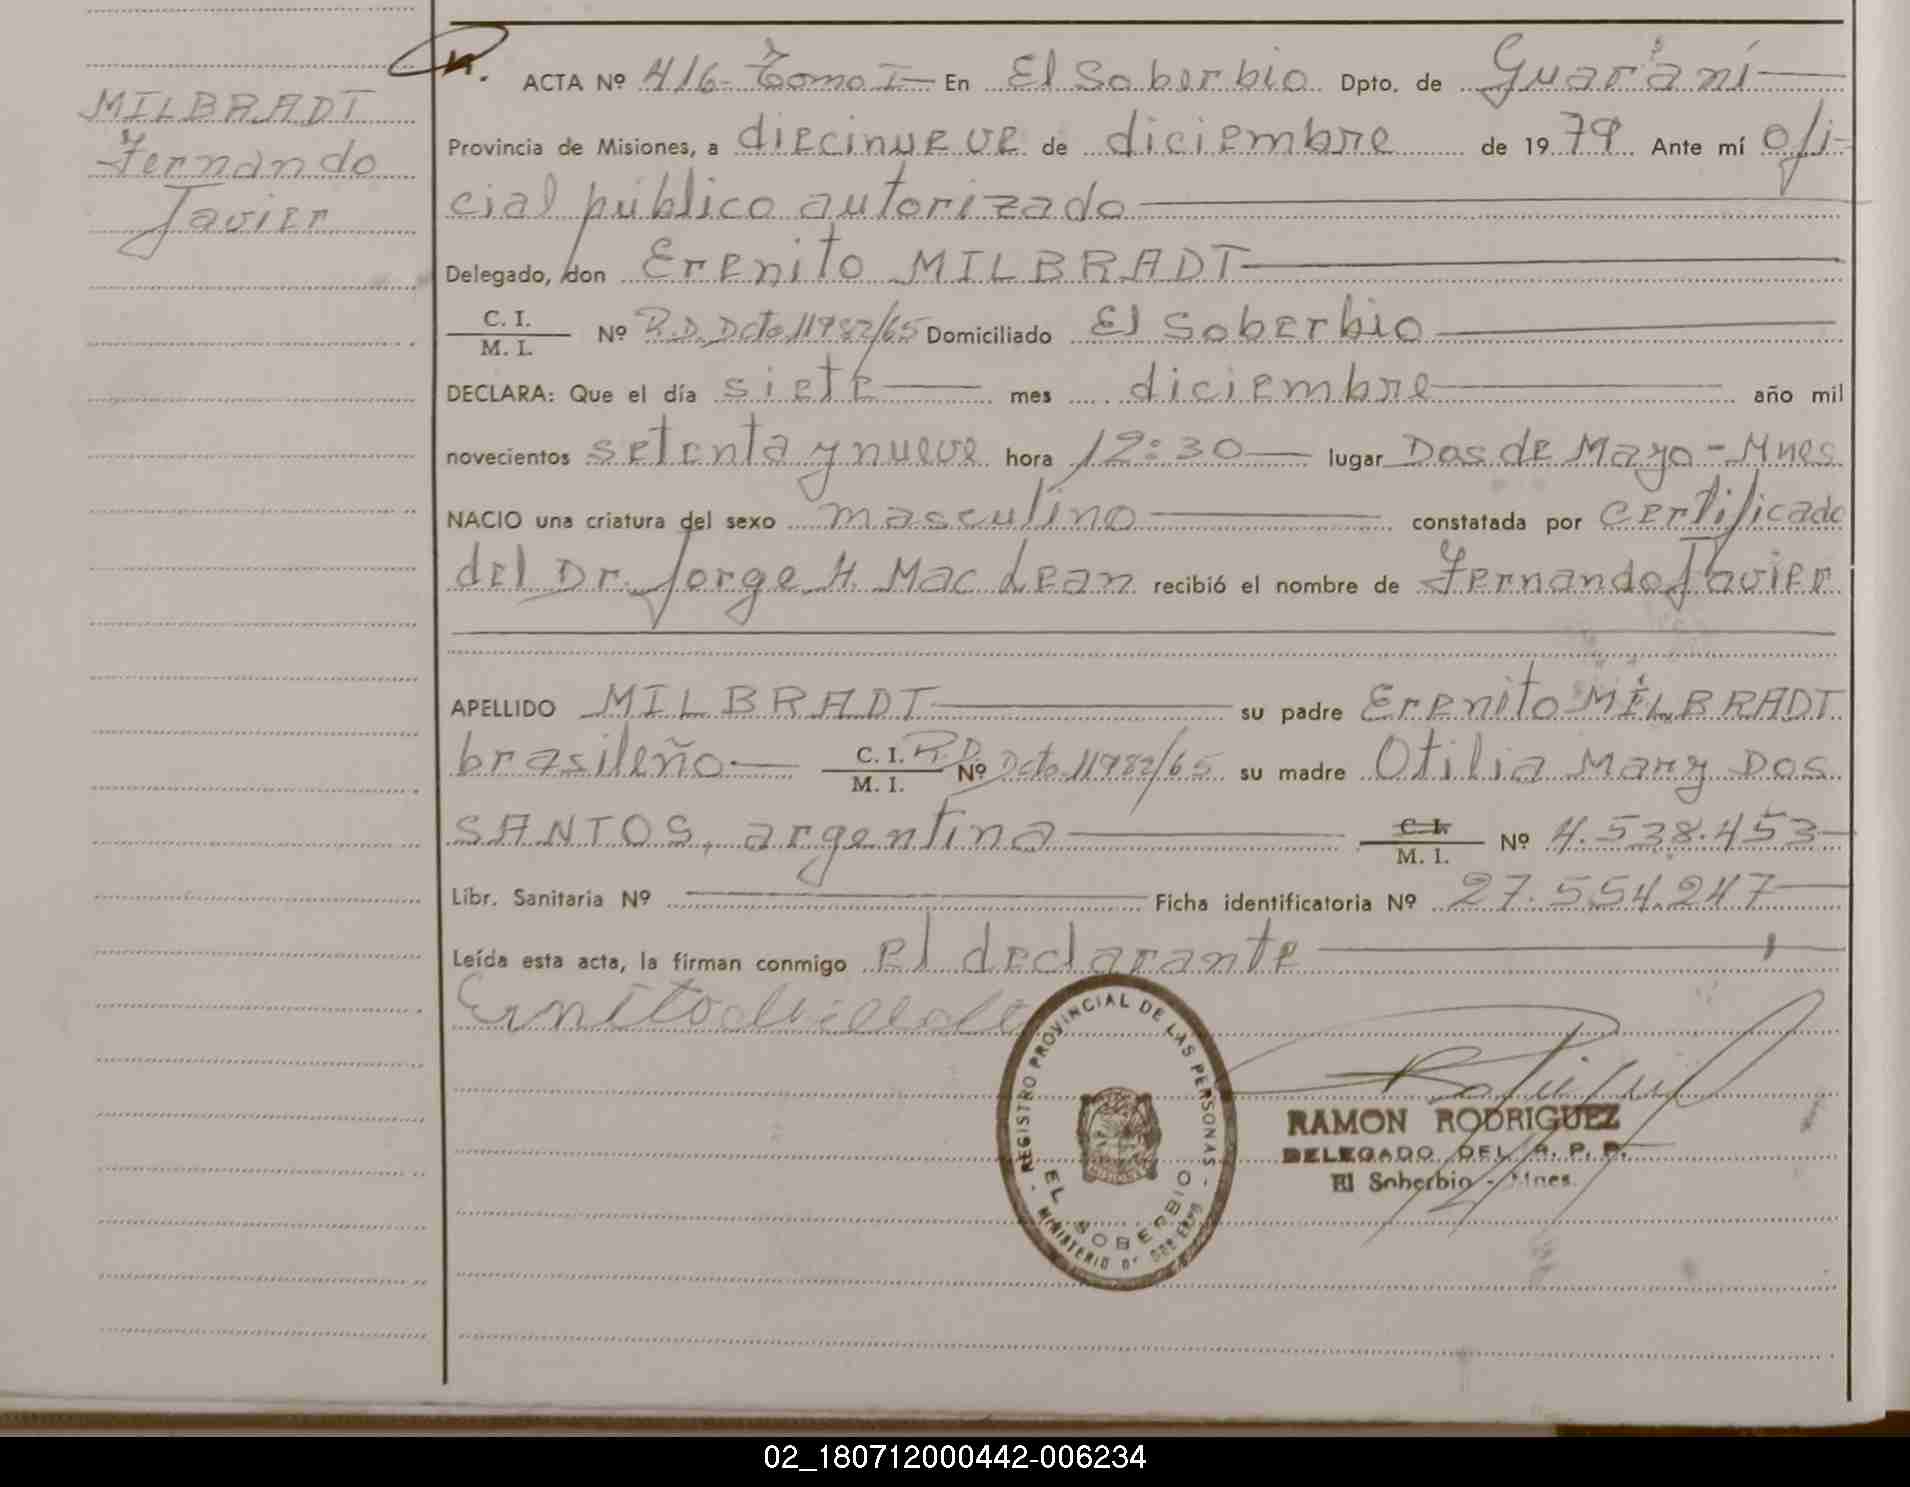 N. ACTA Nº 416- Tomo I En El Soberbio Dpto. de Guaraní
MILBRADT
Fernando
Javier
Provincia de Misiones, a diecinueve de diciembre de 1979 Ante mí ofi-
cial público autorizado
Delegado, don Erenito MILBRADT
C. I.
M. I. Nº R.D. Dcto 11982/65 Domiciliado El Soberbio
DECLARA: Que el día siete mes diciembre año mil
novecientos setenta y nueve hora 12:30 lugar Dos de Mayo - Mnes
NACIO una criatura del sexo masculino constatada por certificado
del Dr. Jorge H. Mac Lean recibió el nombre de Fernando Javier
APELLIDO MILBRADT su padre Erenito MILBRADT
brasileño C. I. M. I. Nº R.D. Dcto 11982/65 su madre Otilia Mary DOS
SANTOS, argentina C. I. M. I. Nº 4.538.453
Libr. Sanitaria Nº Ficha identificatoria Nº 27.554.247
Leída esta acta, la firman conmigo el declarante
- REGISTRO PROVINCIAL DE LAS PERSONAS -
EL SOBERBIO
MINISTERIO DE GOBIERNO
RAMON RODRIGUEZ
DELEGADO DEL R. P. P.
El Soberbio - Mnes.
02_180712000442-006234